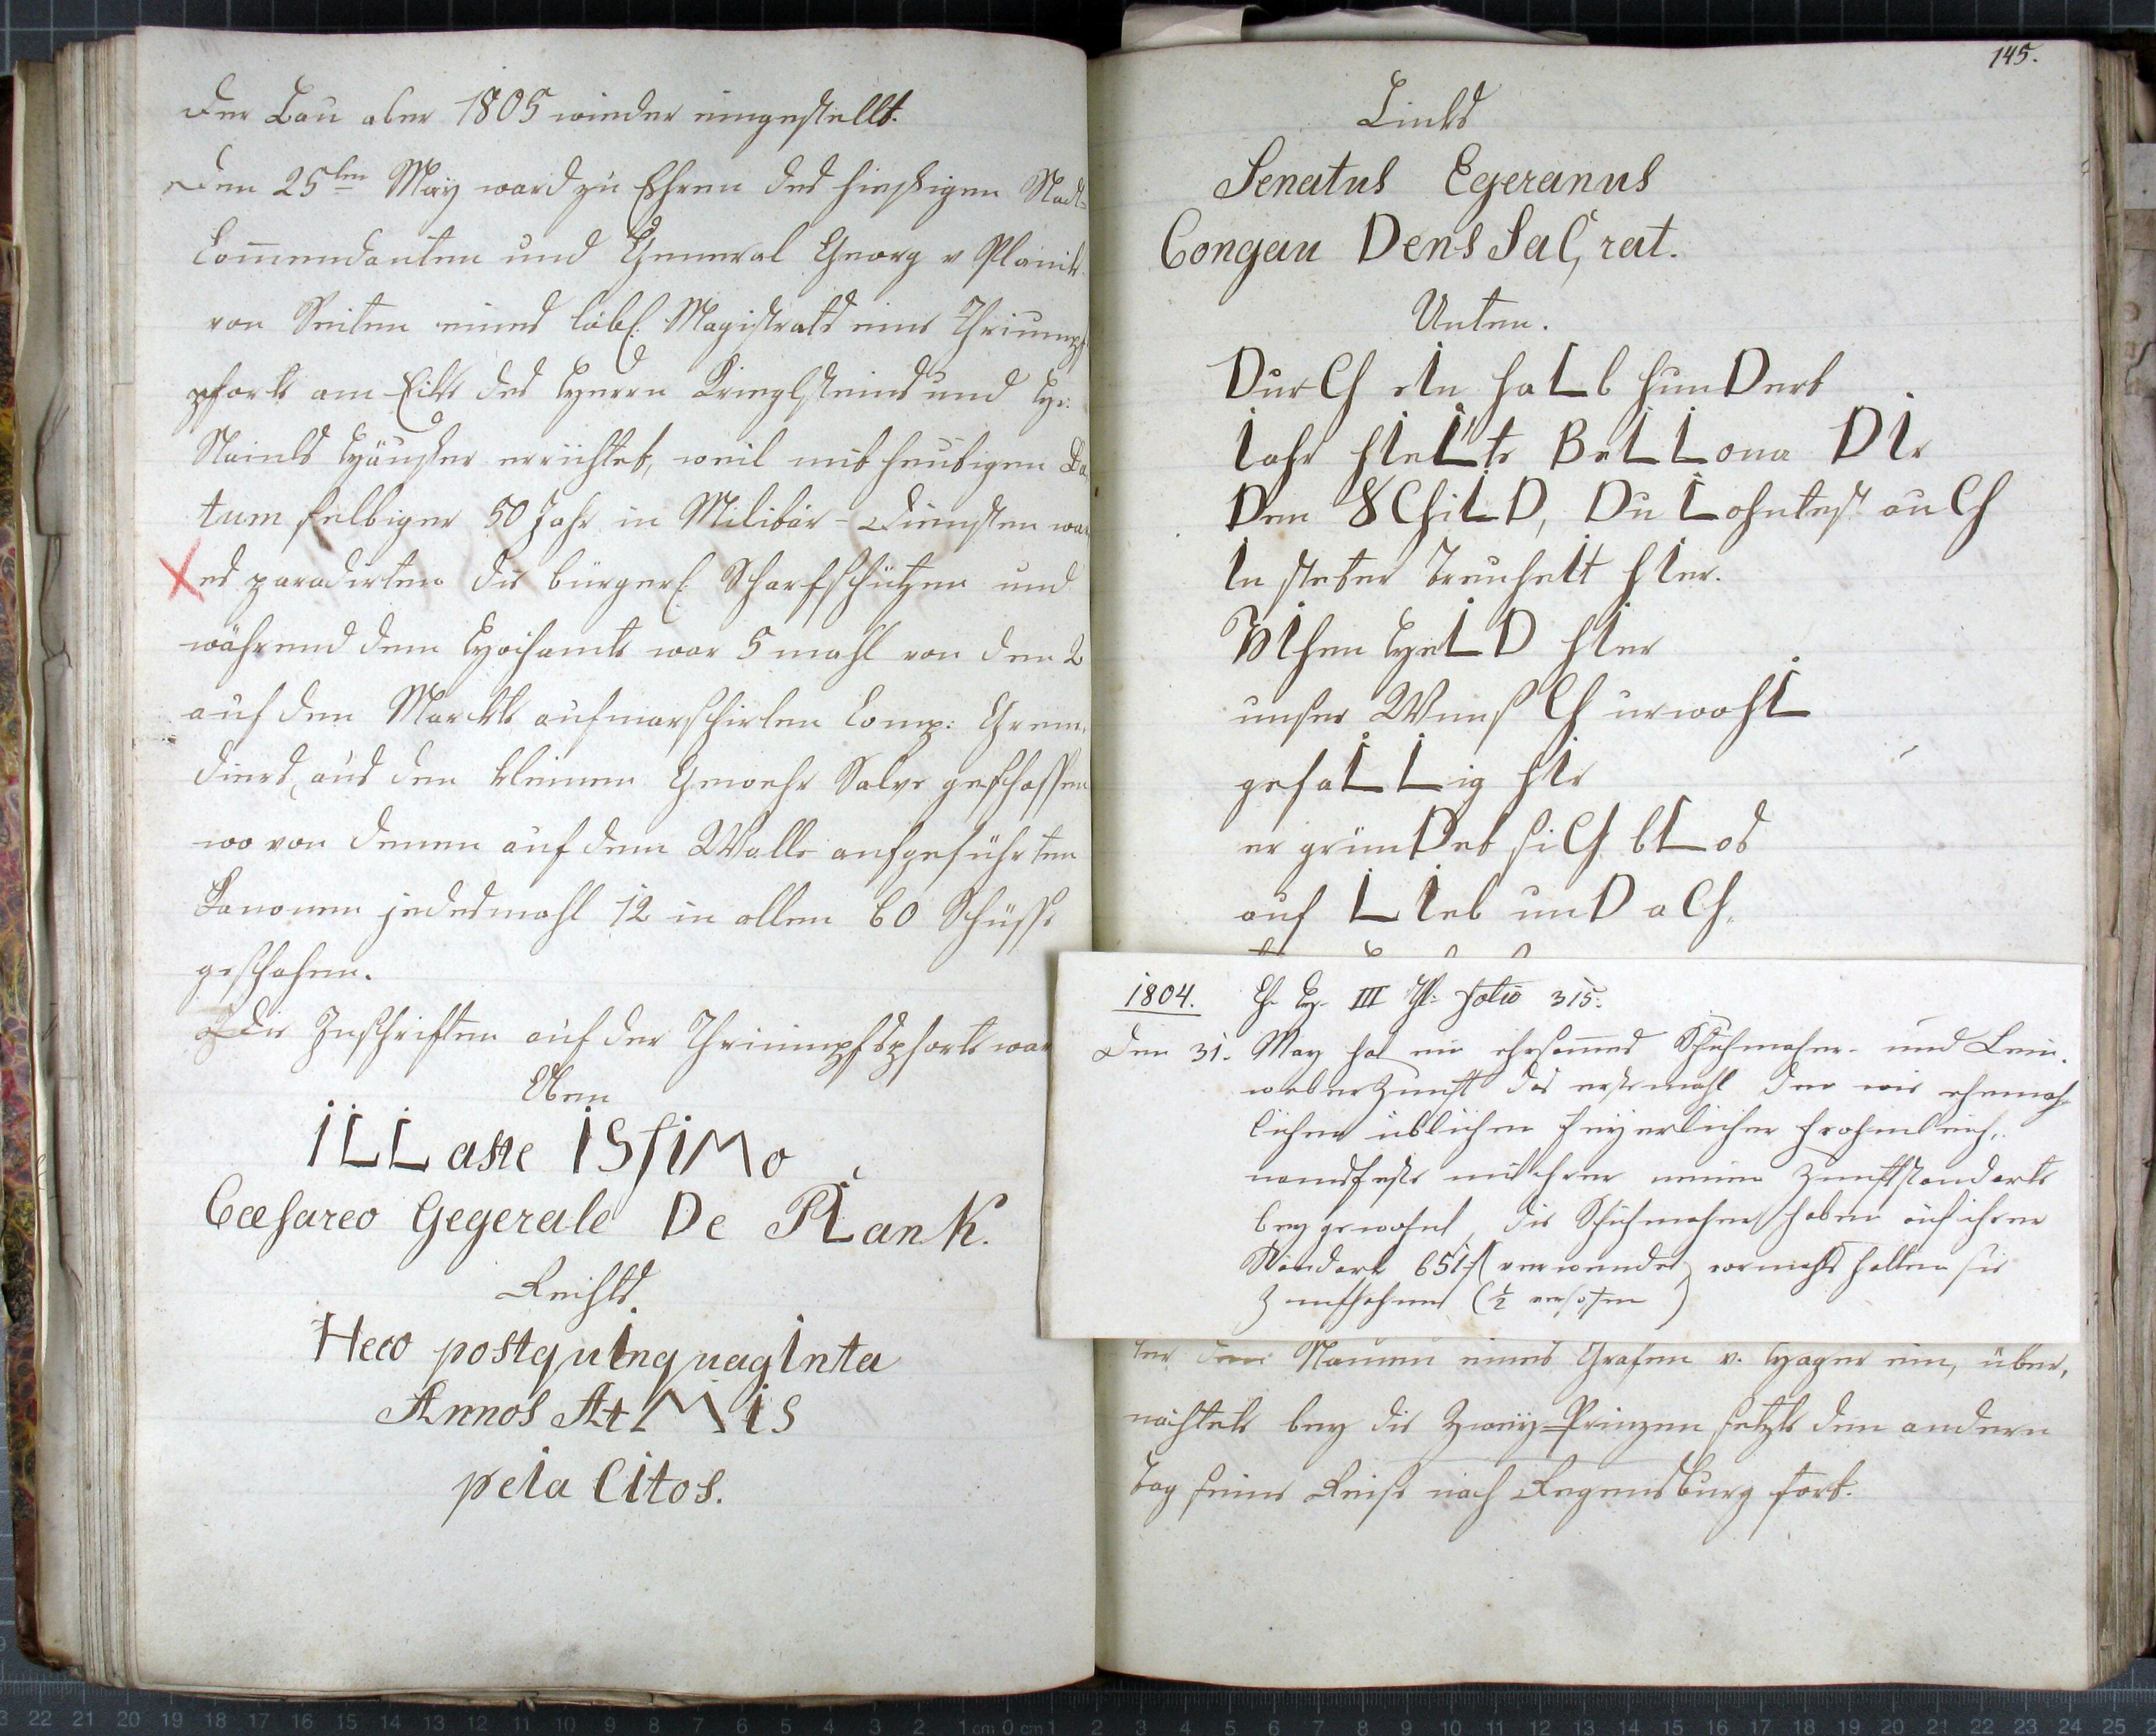 der Bau aber 1805 wieder eingestellt.
Den 25ten May ward zu Ehren des hiesigen Stadt=
Commendanten und General Georg v Plank
von Seiten eines löbl: Magistrats eine Thriumpf
pforte am Ecke des Herrn Krieglsteins und Hr:
Stainls Häußer errichtet, weil mit heutigen Da
tum selbiger 50 Jahr in Militär-Diensten war
es paradirten die bürgerl: Scharfschützen und
während dem Hochamte war 5 mahl von den 2
auf den Markte aufmarschirten Comp: Grena
diers, aus den kleinen Gewehr Salve geschossen
wo von denen auf dem Walle aufgeführten
Kanonen jedesmahl 12 in allen 60 Schüsse
geschahen.
Die Inschriften auf der Thriumpfspforte war
Oben
ILLaste ISsiMo
Cæsareo Gegerale De PLank.
Rechts.
Heco postquInquagInta
Annos At MIs
peIa CItos.
145.
Links
Senatus Egeranus
Congau Dens SaC, rat.
Unten.
DurCh eIn haLb hunDert
Iahr hIeLte BeLLona DIr
Den SChiLD, Du Lohntest auCh
In steter Treuheit hIer.
HeLD hIer
unser WunsCh urwohL
gefaLLig hIe
er grünDet siCh bLos
auf LIeb unD aCh,
1804. Ch. Hr. III Th: folio 315.
Den 31. May hat ein ehrsammes Schuhmacher- und Lein.
weberzunft das erstemahl den wie ehemah
lichen üblichen feyerlichen Frohnleich,
namsfeste mit ihrer neuen Zunftstandarte
beygewohnt, die Schuhmacher haben auf ihrer
Standart 651 f verwendet, vormahls hatten sie
Zunftfahnen (1/2 )
ter dem Namen eines Grafen v. Hager ein, über,
nachtete bey die Zwey=Prinzen setzte den andern
Tag seine Reise nach Regensburg fort.